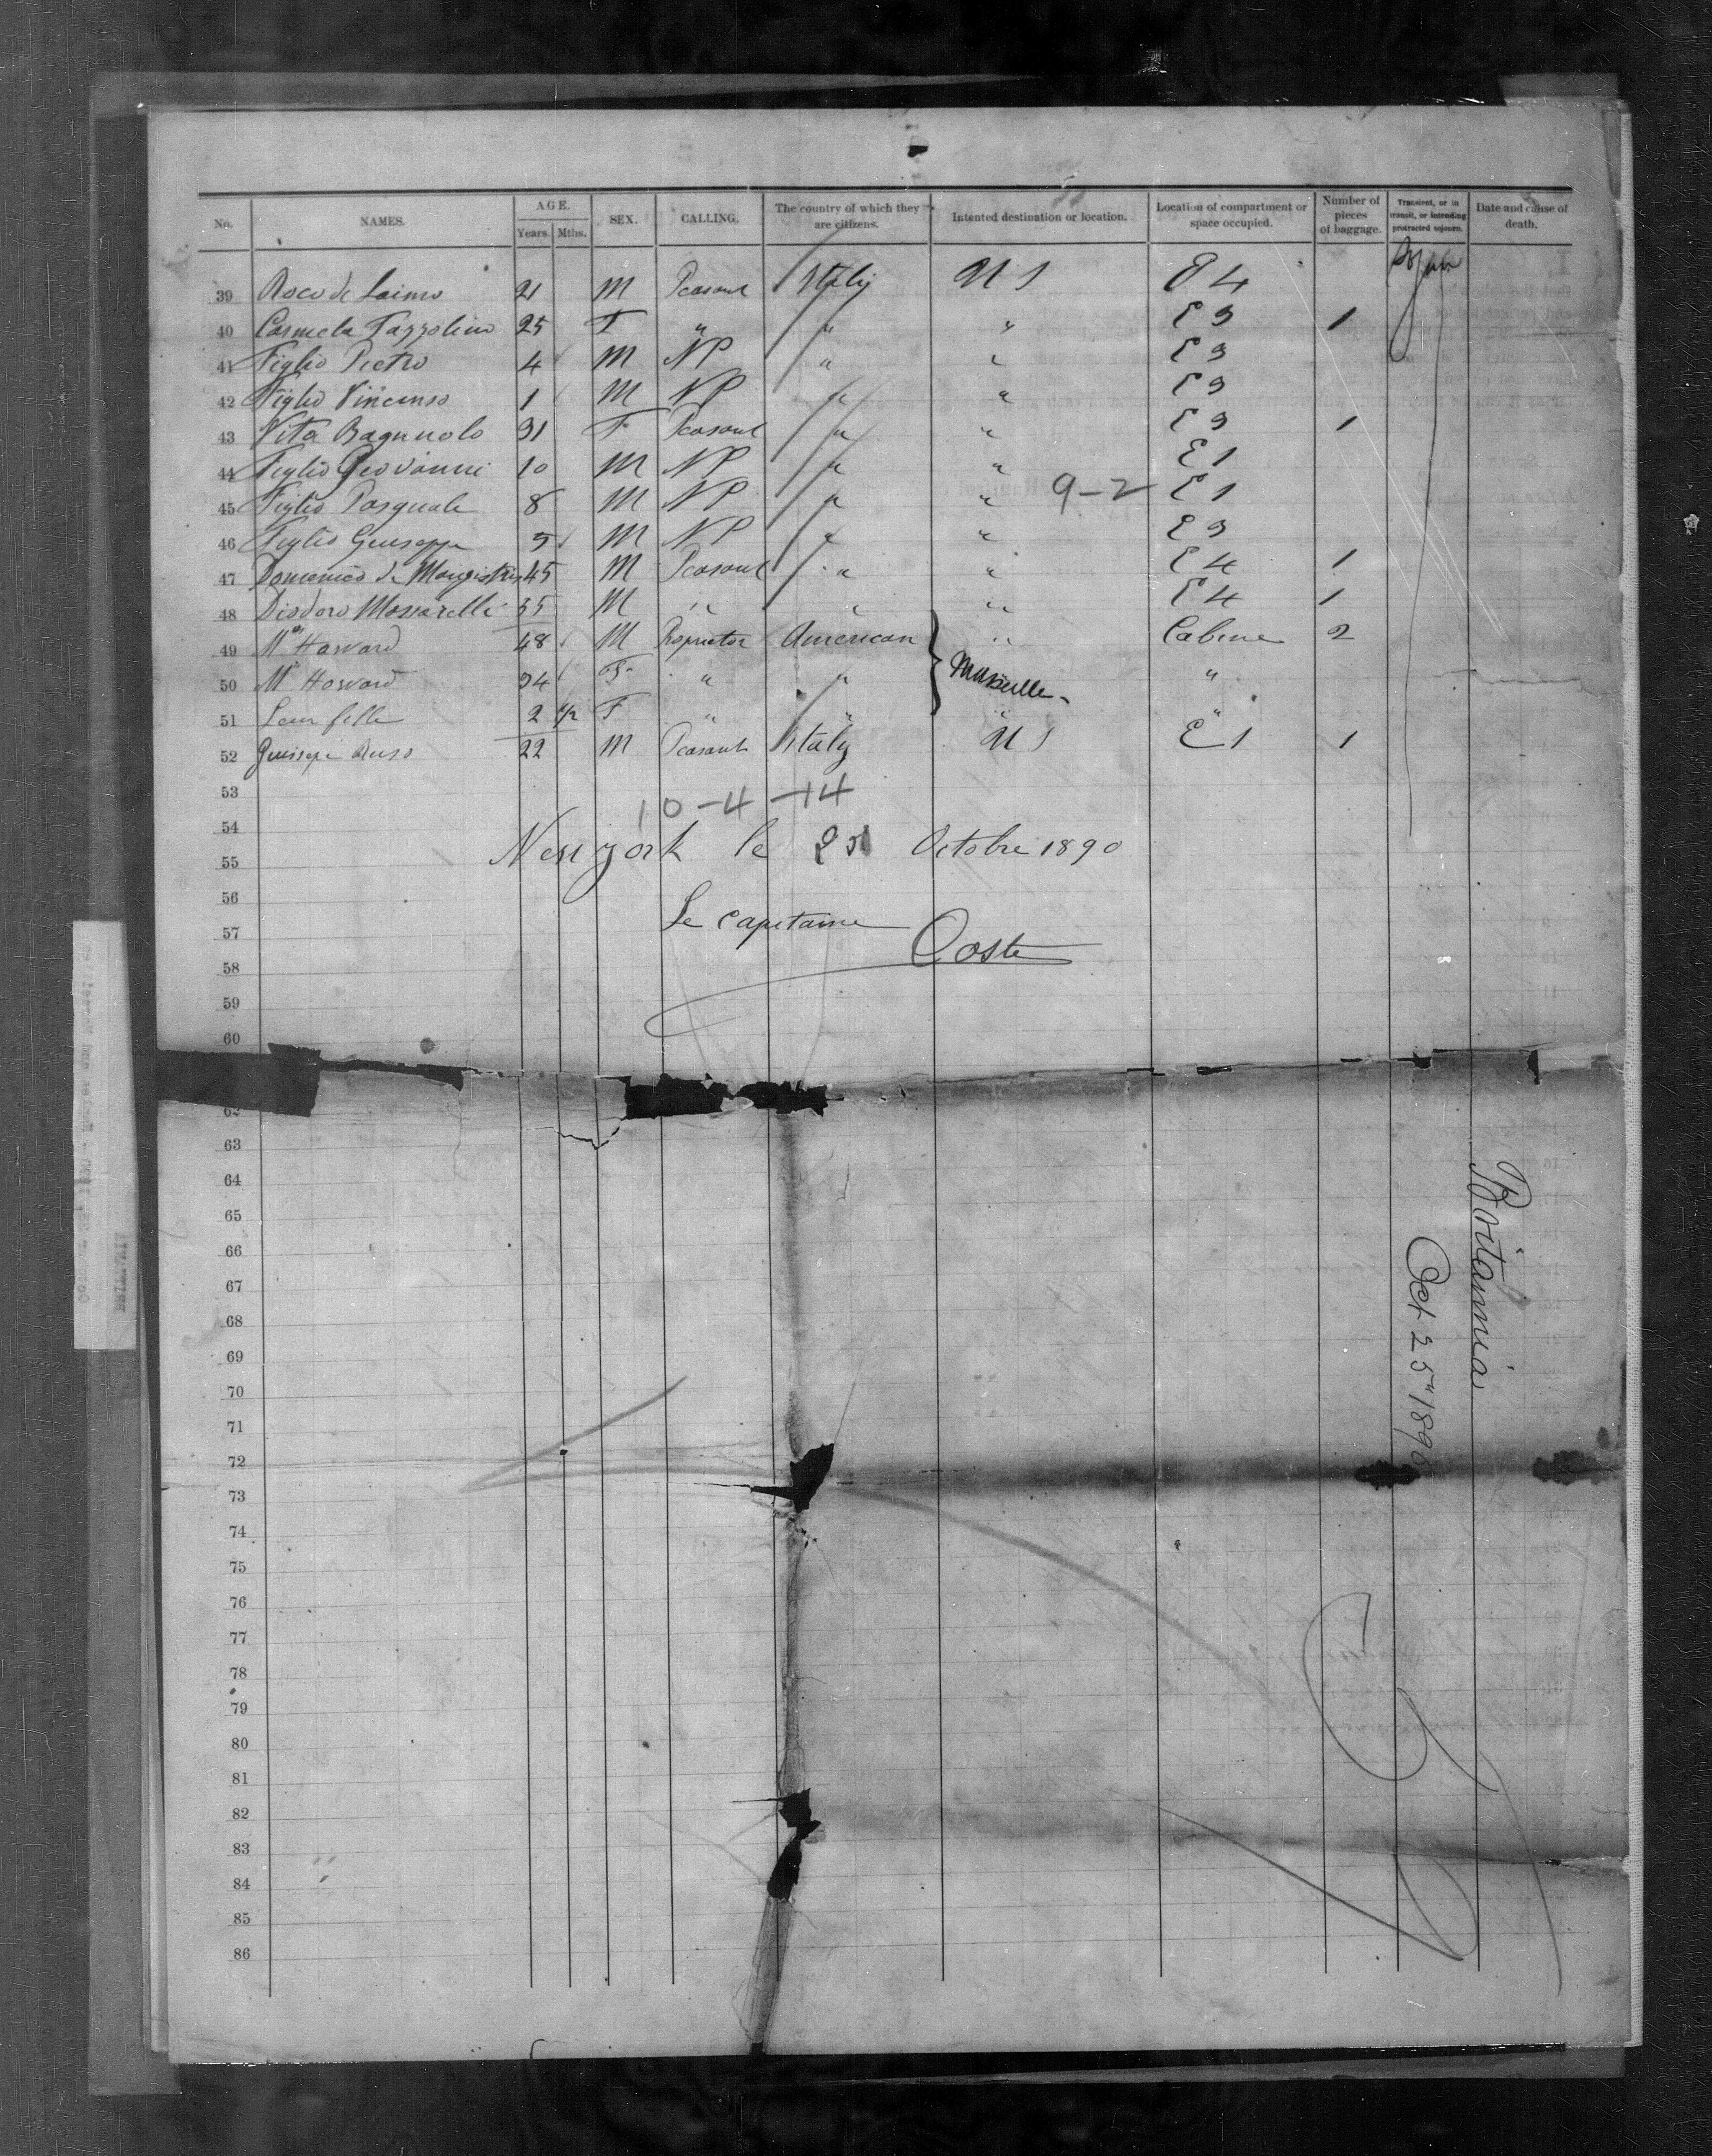 No. NAMES. AGE. Years. Mths. SEX. CALLING. The country of which they are citizens. Intented destination or location. Location of compartment or space occupied. Number of pieces of baggage. Transient, or in transit, or intending protracted sojourn. Date and cause of death.
39 Roco de Laimo 21 M Peasant Italy U S E 4
40 Carmela Tazzolino 25 F " " " E 3 1
41 Figlio Pietro 4 M NP " " E 3
42 Figlio Vincenso 1 M NP " " E 3
43 Vita Bagnuolo 31 F Peasant " " E 3 1
44 Figlio Geovanni 10 M NP " " E 1
45 Figlio Pasquale 8 M NP " " 9-2 E 1
46 Figlio Giuseppe 5 M NP " " E 3
47 Domenico de Mangistris 45 M Peasant " " E 4 1
48 Diodoro Massarelli 35 M " " " E 4 1
49 Mr Harvard 48 M Proprietor American " Cabine 2
50 Harvard 34 F " " Marseille "
51 Leur fille 2 1/2 F " " " "
52 Giuseppe Russo 22 M Peasant Italy U S E 1 1
53
10-4-14
54
New york le Octobre 1890
55
56
Le capitaine
57
Coste
58
59
60
62
63
64
65
66
67
68
69
70
71
72
73
74
75
76
77
78
79
80
81
82
83
84
85
86
Britannia
Oct 25" 1890
BRITANNIA